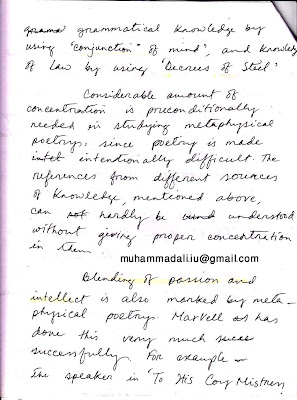 grama grammatical knowledge by
using 'conjunction' of mind', and knowledge
of Law by using 'Decrees of Steel'
Considerable amount of
concentration is preconditionally
needed in studying metaphysical
poetry, since poetry is made
intel intentionally difficult. The
references from different sources
of Knowledge mentioned above,
can not hardly be understood
without giving proper concentration
in them.
muhammadaliiu@gmail.com
Blending of passion and
intellect is also marked by meta-
physical poetry. Marvell as has
done this very much
successfully. For example
the speaker in 'To His Coy Mistress